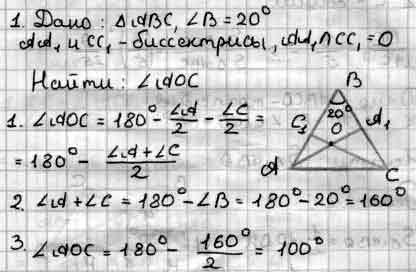 1. Дано: △ABC, ∠B = 20°
AA₁ и CC₁ - биссектрисы, AA₁∩CC₁ = O
Найти: ∠AOC
1. ∠AOC = 180° - ∠A/2 - ∠C/2 =
= 180° - (∠A+∠C)/2
2. ∠A + ∠C = 180° - ∠B = 180° - 20° = 160°
3. ∠AOC = 180° - 160°/2 = 100°
B
20°
C₁ O A₁
A C